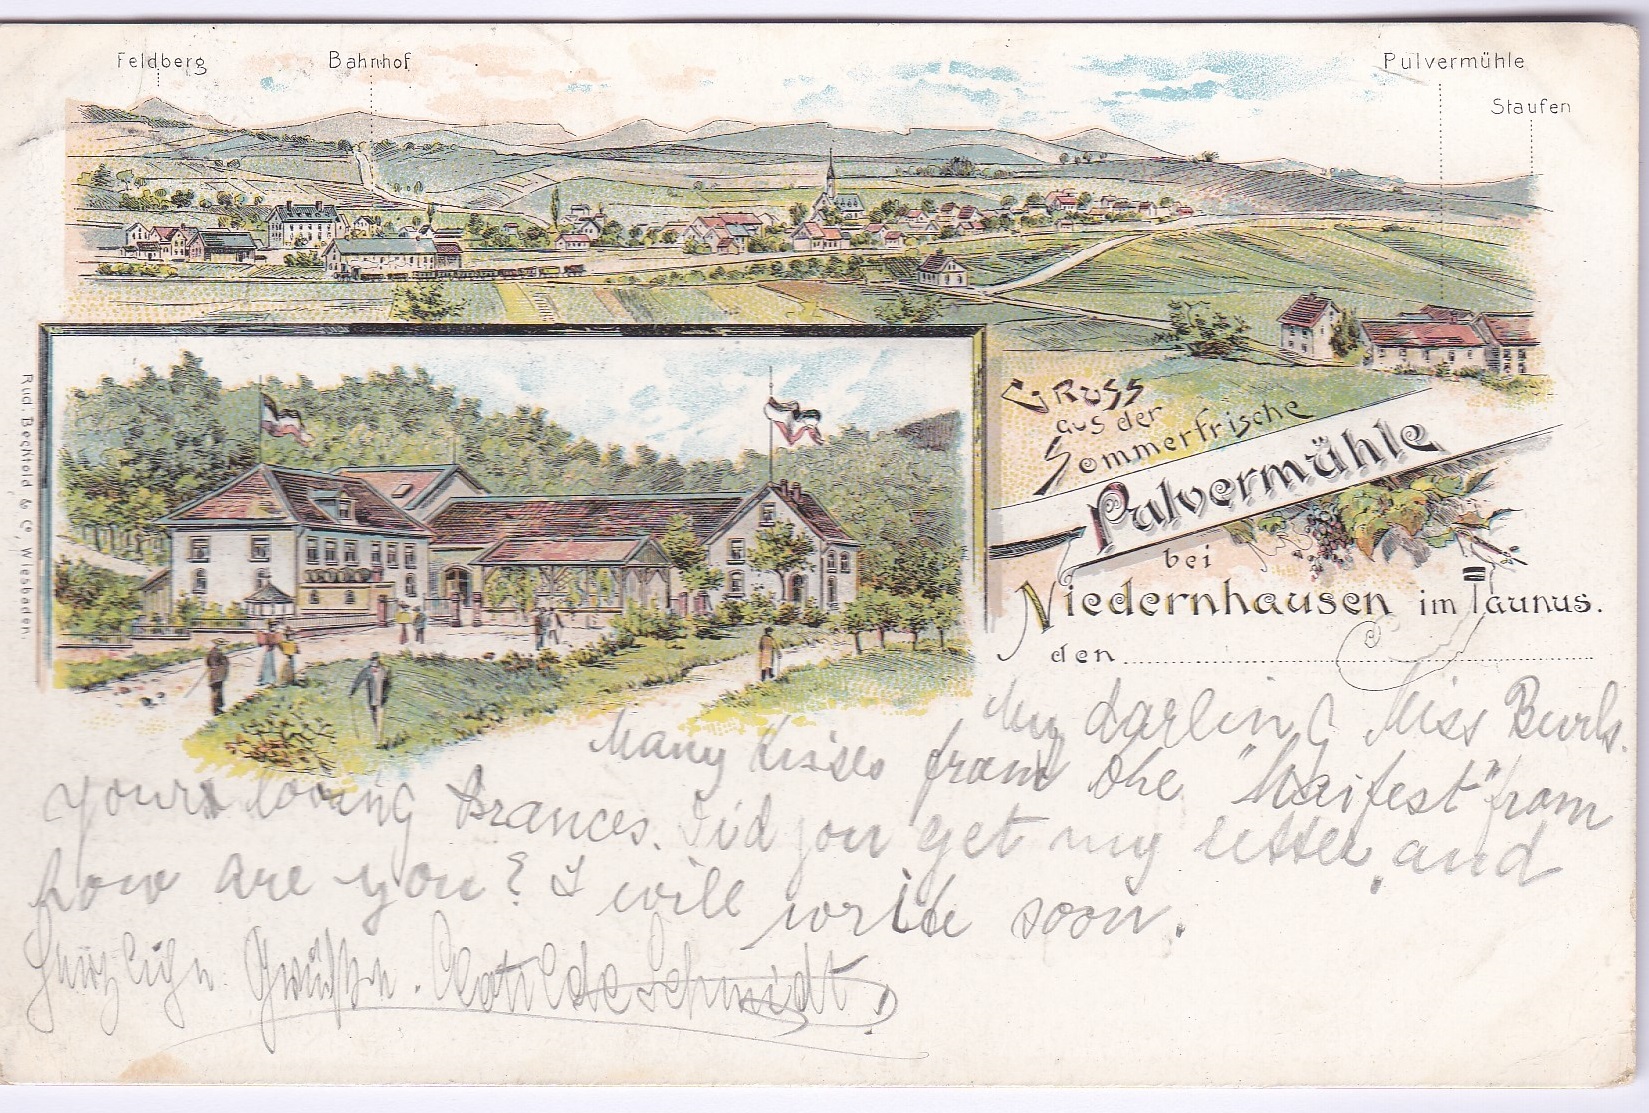 Feldberg
Bahnhof
Pulvermühle
Staufen
Gruss
aus der
Sommerfrische
Pulvermühle
bei
Niedernhausen im Taunus.
den
Rud. Bechtold & Co, Wiesbaden.
My darling Miss Burls.
Many kisses from the "Maifest" from
your loving Frances. Did you get my letter, and
how are you? I will write soon.
Herzliche Grüße. Clotilde Schmidt.